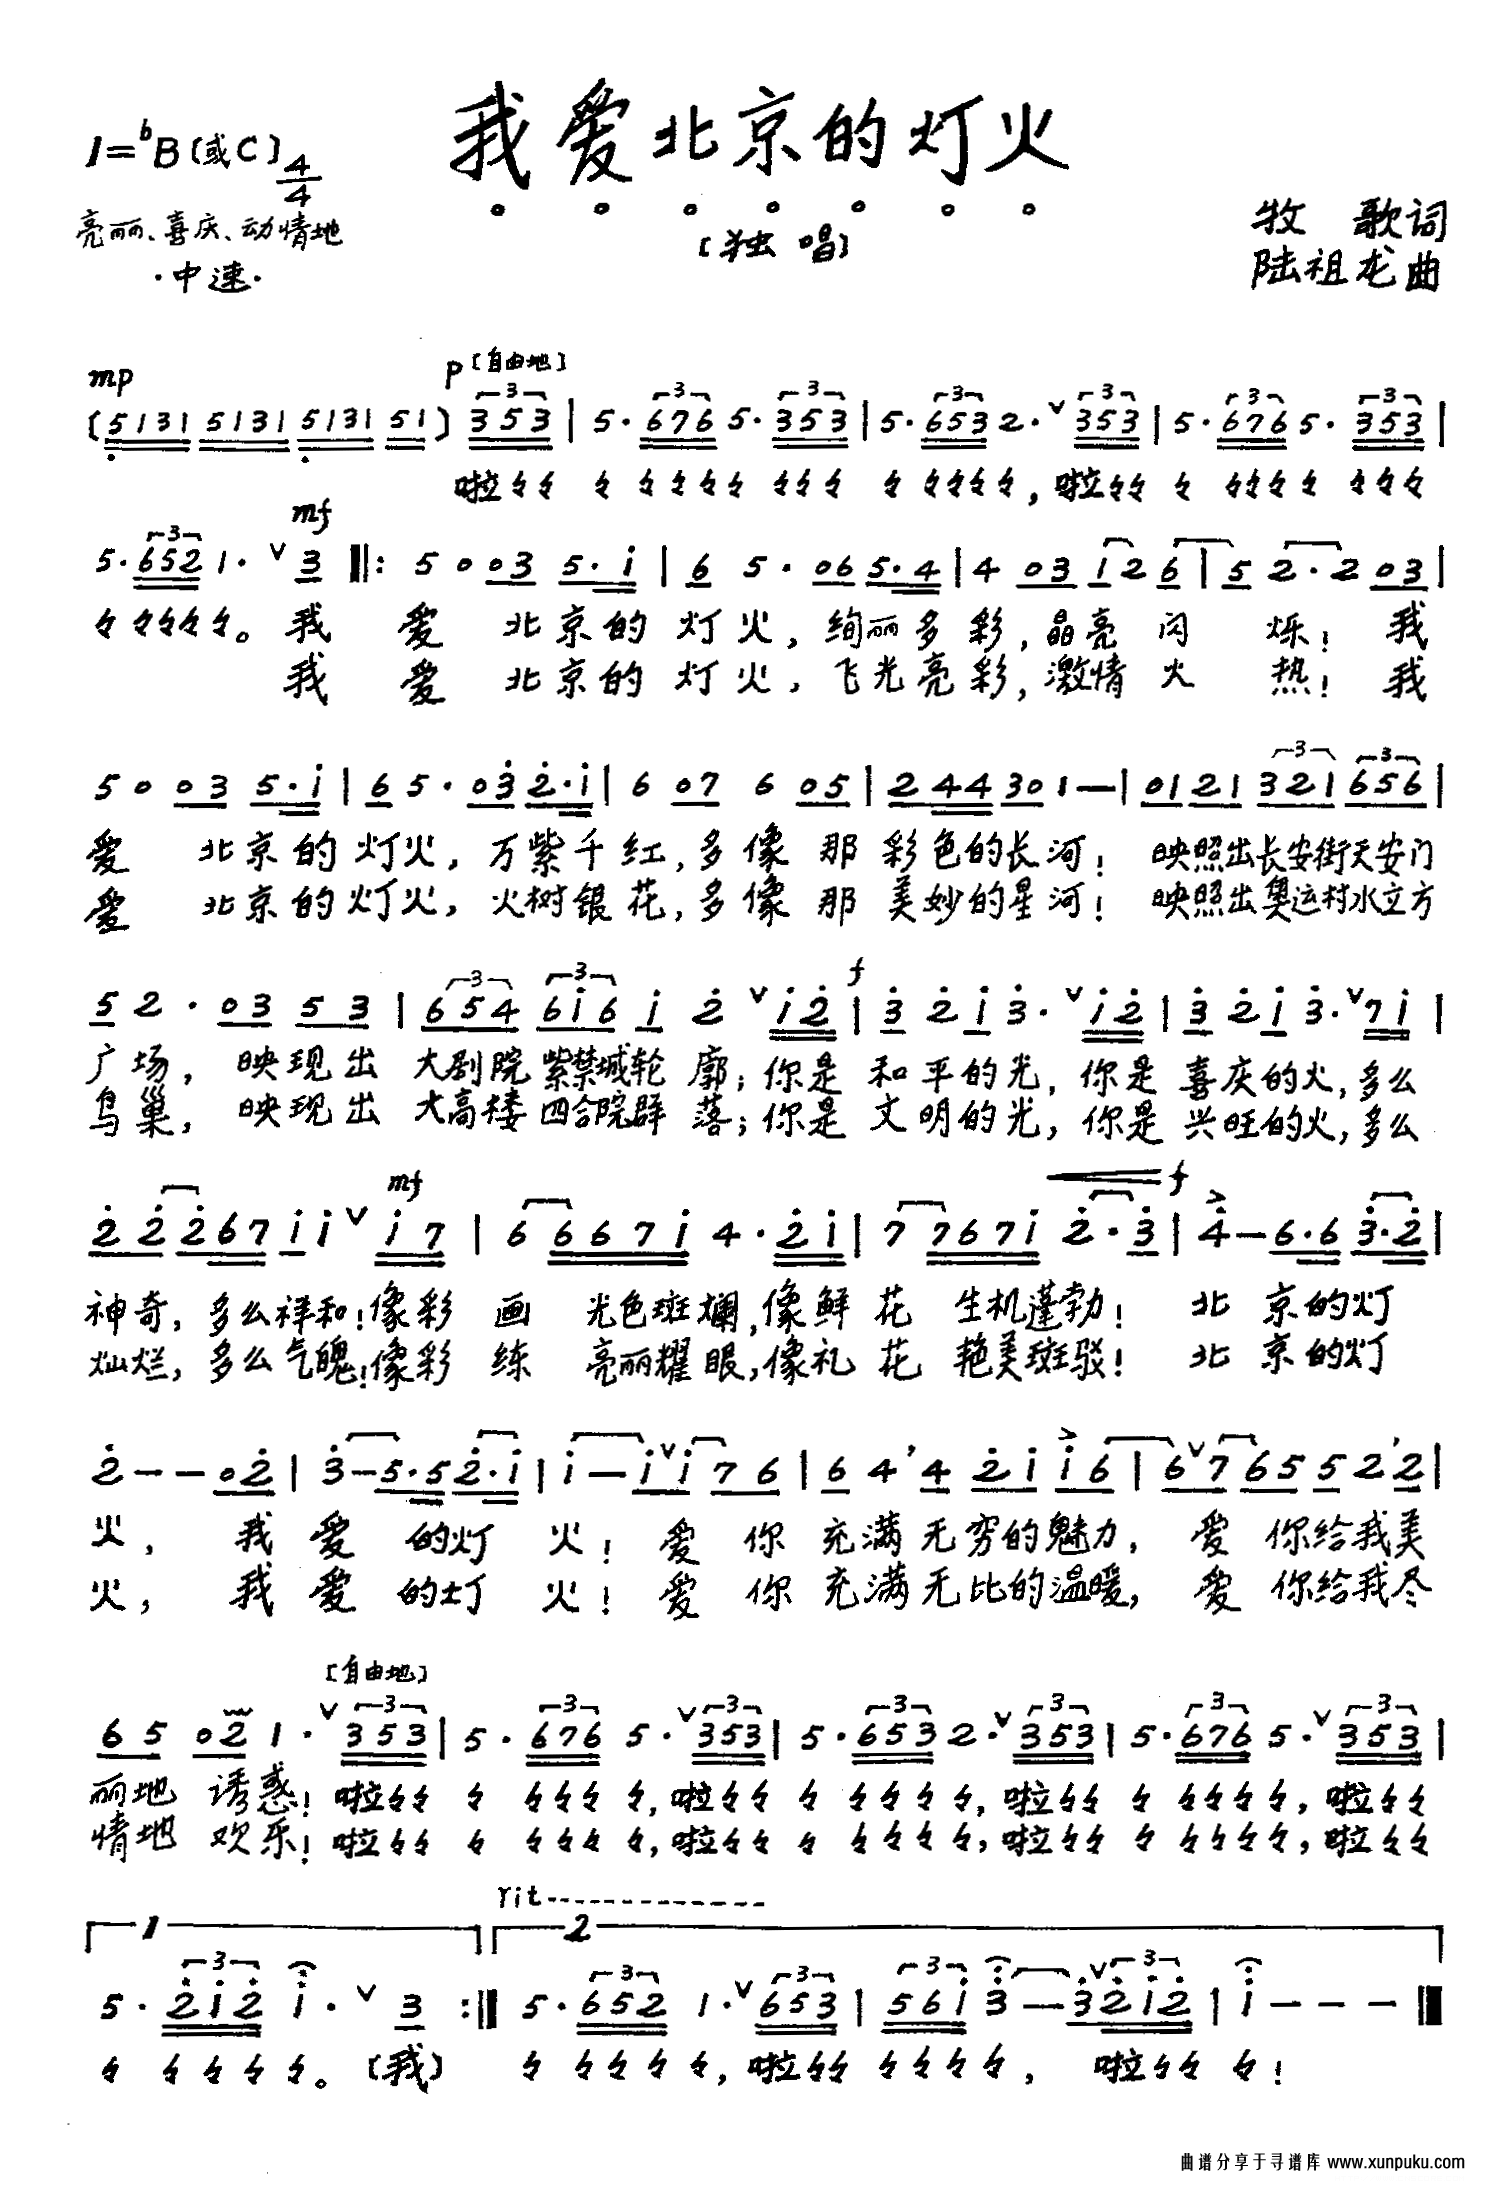 我爱北京的灯火
1=♭B(或C) 4/4
亮丽、喜庆、动情地
·中速·
[独唱]
牧 歌词
陆祖龙曲
mp p [自由地]
(5131 5131 5131 51) 353 | 5· 676 5· 353 | 5· 653 2· ∨ 353 | 5· 676 5· 353 |
啦ㄣㄣ ㄣ ㄣㄣㄣㄣ ㄣㄣㄣ ㄣ ㄣㄣㄣㄣ, 啦ㄣㄣ ㄣ ㄣㄣㄣㄣ ㄣㄣㄣ
mf
5· 652 1· ∨ 3 ‖: 5 0 03 5·i | 6 5· 06 5·4 | 4 03 i2 6 | 5 2·2 03 |
ㄣ ㄣㄣㄣㄣ。我 爱 北京的 灯火, 绚丽多彩, 晶亮 闪 烁! 我
我 爱 北京的 灯火, 飞光亮彩, 激情 火 热! 我
5 0 03 5·i | 6 5· 03 2·i | 6 07 6 05 | 2 44 30 1 — | 01 21 321 656 |
爱 北京的灯火, 万紫千红, 多像 那 彩色的长河! 映照出长安街天安门
爱 北京的灯火, 火树银花, 多像 那 美妙的星河! 映照出奥运村水立方
f
5 2· 03 53 | 654 6i6 i 2 ∨ i2 | 3 2 i 3· ∨ i2 | 3 2 i 3· ∨ 7i |
广场, 映现出 大剧院紫禁城轮 廓; 你是 和平的光, 你是 喜庆的火, 多么
鸟巢, 映现出 大高楼四合院群 落; 你是 文明的光, 你是 兴旺的火, 多么
mf f
2 2 2 67 i i ∨ i7 | 6 667i 4· 2i | 7 767i 2·3 | 4 — 6·6 3·2 |
神奇, 多么祥和! 像彩 画 光色斑斓, 像鲜 花 生机蓬勃! 北 京的灯
灿烂, 多么气魄! 像彩 练 亮丽耀眼, 像礼 花 艳美斑驳! 北 京的灯
2 — — 02 | 3 — 5·5 2·i | i — i ∨ i 76 | 6 4 ’ 4 2i i6 | 6 ∨ 7 65 5 2 ’ 2 |
火, 我 爱 的灯 火! 爱 你 充满无穷的魅力, 爱 你给我美
火, 我 爱 的灯 火! 爱 你 充满无比的温暖, 爱 你给我尽
[自由地]
65 02 1· ∨ 353 | 5· 676 5· ∨ 353 | 5· 653 2· ∨ 353 | 5· 676 5· ∨ 353 |
丽地 诱惑! 啦ㄣㄣ ㄣ ㄣㄣㄣ ㄣ, 啦ㄣㄣ ㄣ ㄣㄣㄣ ㄣ, 啦ㄣㄣ ㄣ ㄣㄣㄣ ㄣ, 啦ㄣㄣ
情地 欢乐! 啦ㄣㄣ ㄣ ㄣㄣㄣ ㄣ, 啦ㄣㄣ ㄣ ㄣㄣㄣ ㄣ, 啦ㄣㄣ ㄣ ㄣㄣㄣ ㄣ, 啦ㄣㄣ
rit
1 2
5· 2i2 i· ∨ 3 :‖ 5· 652 1· ∨ 653 | 56i 3 — 3 ∨ 2i2 | i — — — ‖
ㄣ ㄣㄣㄣ ㄣ。(我) ㄣ ㄣㄣㄣ ㄣ, 啦ㄣㄣ ㄣㄣㄣ ㄣ, 啦ㄣㄣ ㄣ!
曲谱分享于寻谱库 www.xunpuku.com